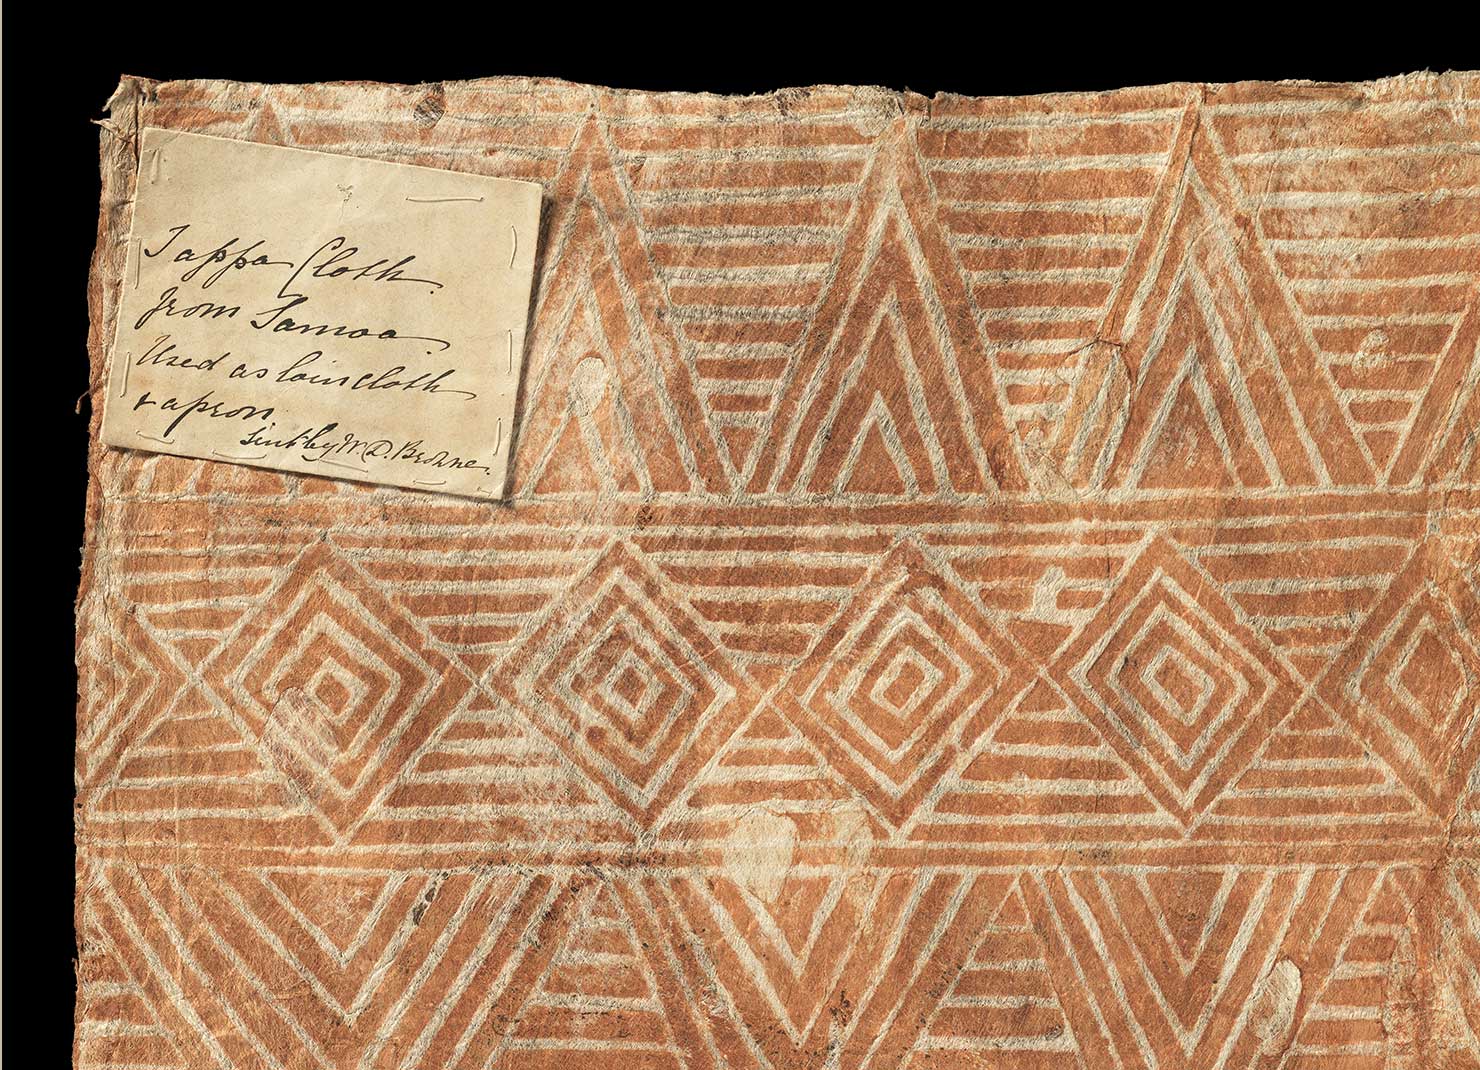 Tappa Cloth.
from Samoa.
Used as loincloth
& apron.
Sent by W. D. Browne.